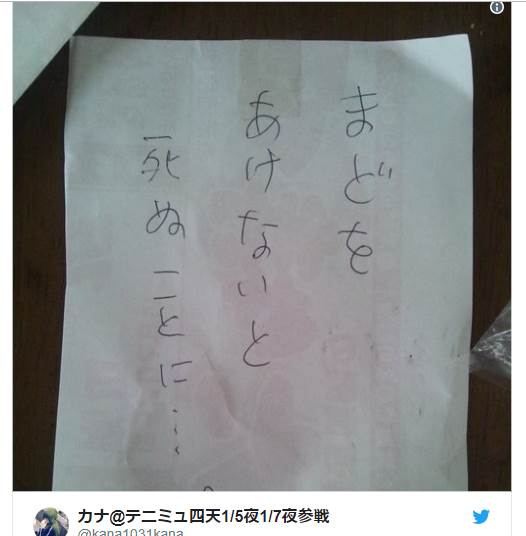 まどを
あけないと
死ぬことに…
カナ@テニミュ四天1/5夜1/7夜参戦
@kana1031kana